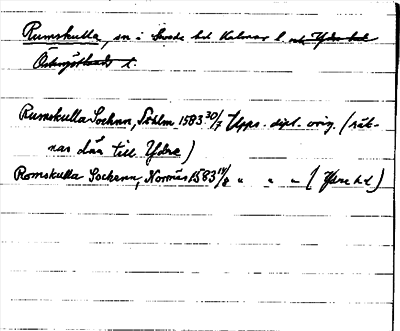 Rumskulla, sn i Sevede hd Kalmar l. och Ydre hd
Östergötlands l.
Rumskulla Sochnn, Sthlm 1583 30/7 Upps. dipl. orig. (räk-
nas då till Ydre)
Romskulla Sockenn, Norrnäs 1583 14/8 " " " (Ydre hd)